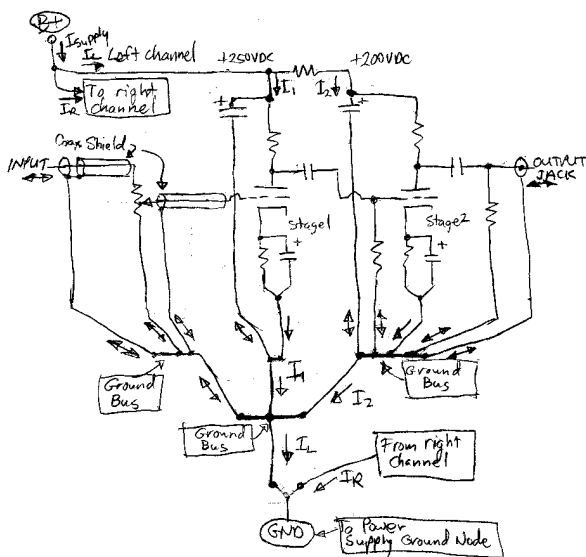 B+
Isupply
IL Left channel
+250VDC
+200VDC
I1
I2
To right
channel
IR
+
+
Coax Shield
INPUT
OUTPUT
JACK
Stage1
+
Stage2
+
Ground
Bus
I1
I2
Ground
Bus
Ground
Bus
IL
From right
Channel
IR
GND
To Power
Supply Ground Node